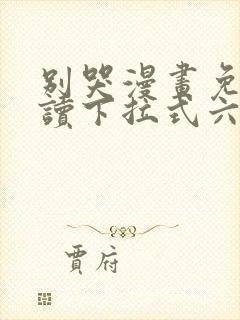 別哭漫畫免
讀下拉式六
賈府